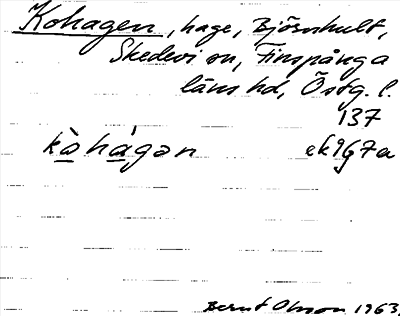 Kohagen, hage, Björnhult,
Skedevi sn, Finspånga
läns hd, Östg. l.
137
kò hágən ek 9G7a
Bernt Olsson 1963.